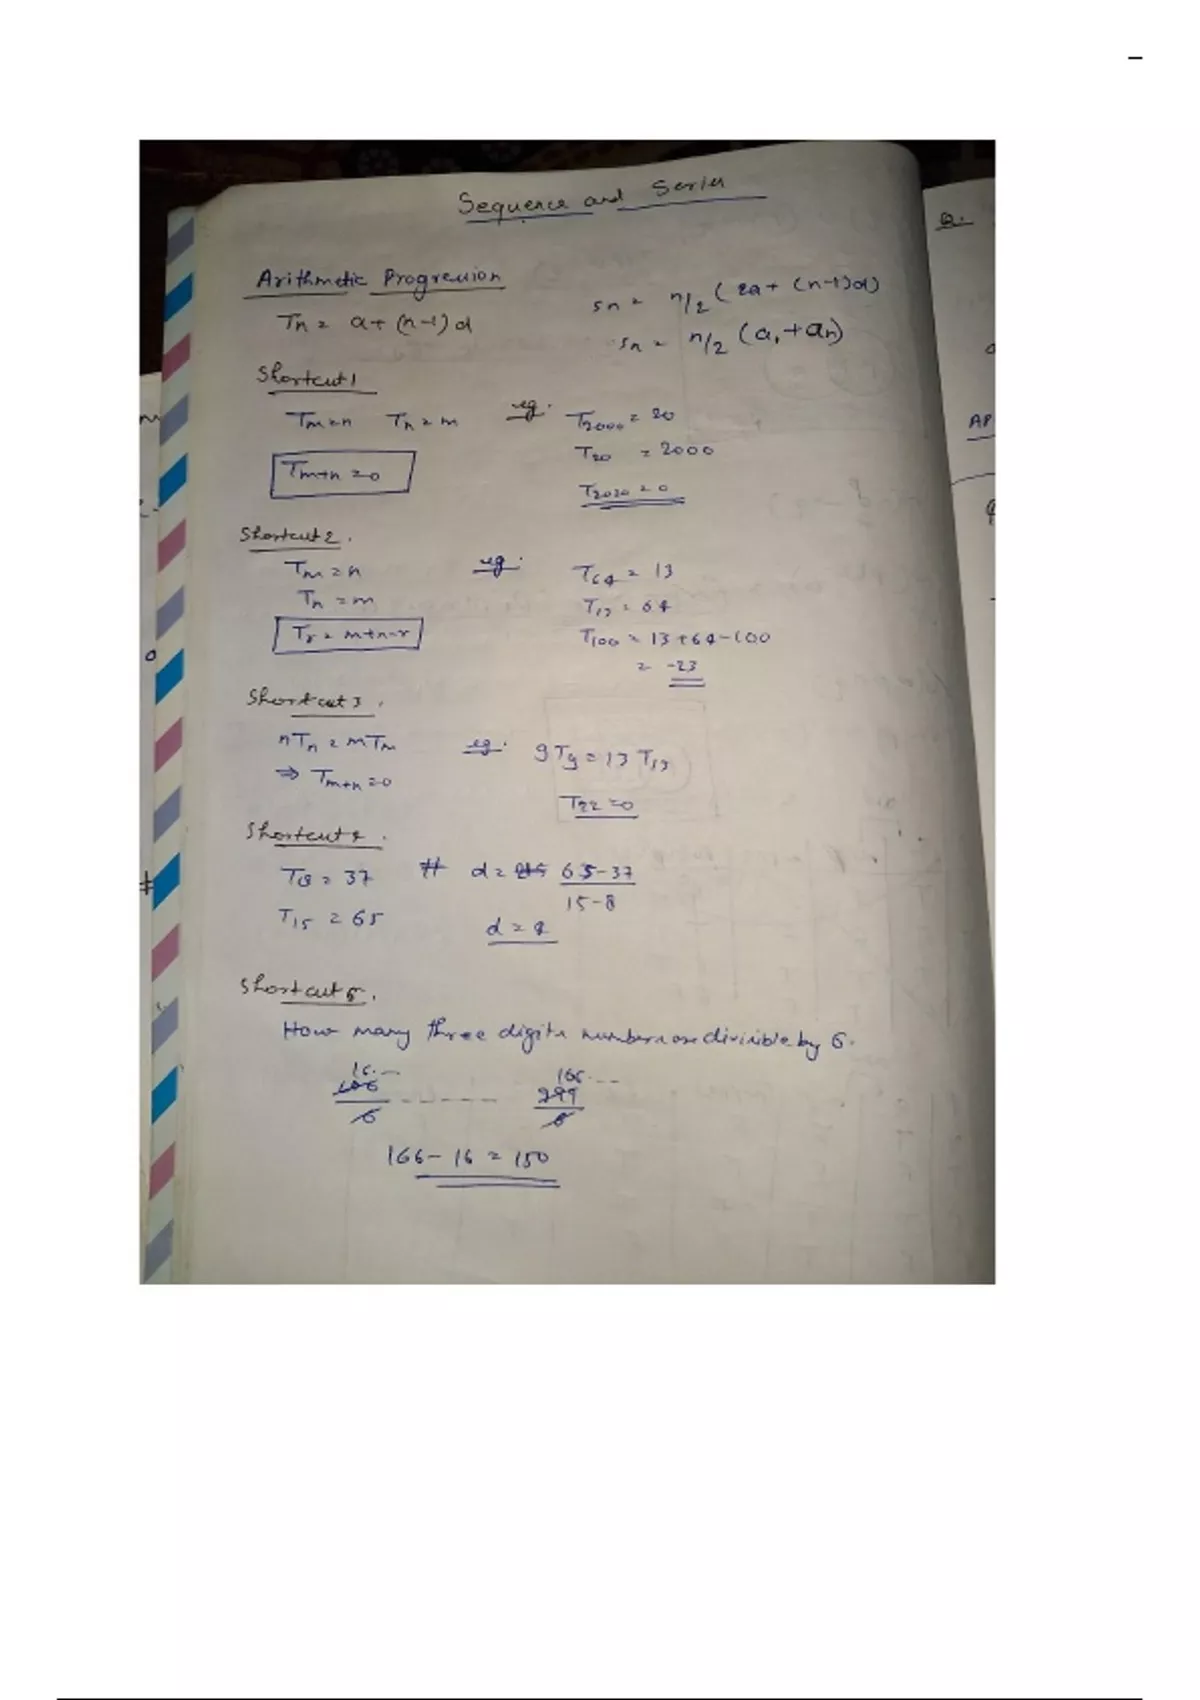 Sequence and Series
Arithmetic Progression
Tn = a + (n-1) d
Sn = n/2 (2a + (n-1)d)
Sn = n/2 (a1 + an)
Shortcut 1
Tm = n Tn = m eg. T2000 = 20
T20 = 2000
Tm+n = 0
T2020 = 0
Shortcut 2.
Tm = n eg. T64 = 13
Tn = m T13 = 64
Tr = m+n-r T100 = 13+64-100
= -23
Shortcut 3.
nTn = mTm eg. 9T9 = 13 T13
⇒ Tm+n = 0
T22 = 0
Shortcut 4.
T8 = 37 # d = 65-37
15-8
T15 = 65 d = 4
Shortcut 5.
How many three digits numbers are divisible by 6.
16.-- 166.--
100 ------- 999
6 6
166 - 16 = 150
Q.
AP